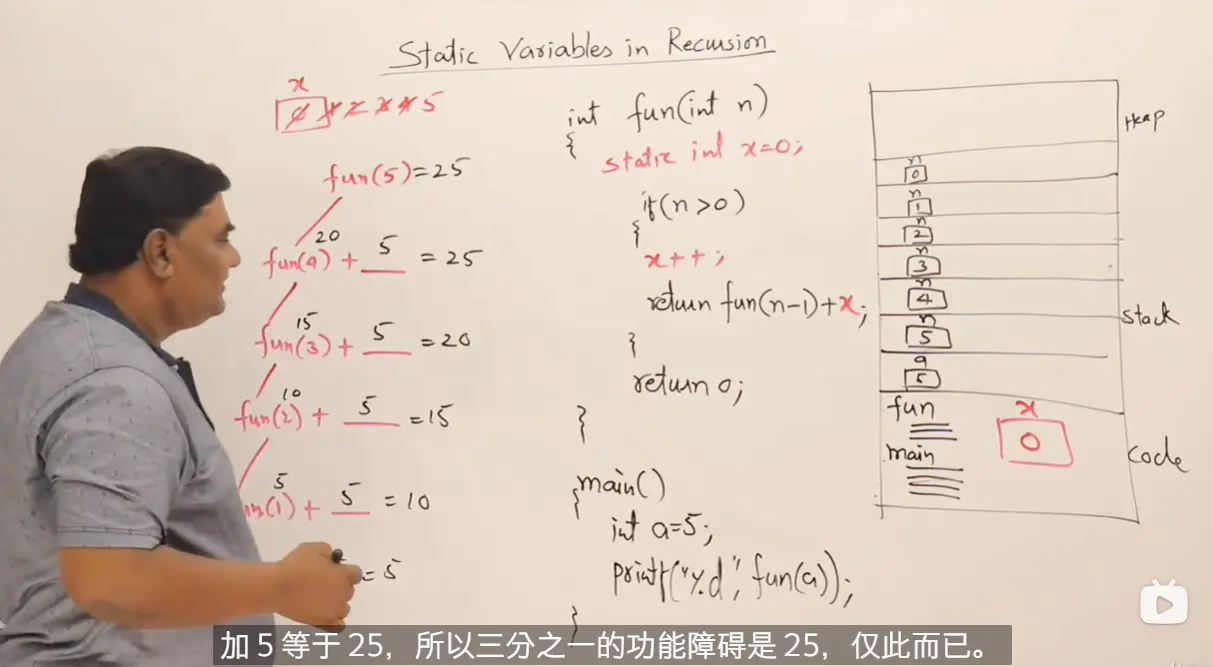 Static Variables in Recursion
x
0 1 2 3 4 5
fun(5)=25
20
fun(4) + 5 = 25
15
fun(3) + 5 = 20
10
fun(2) + 5 = 15
5
fun(1) + 5 = 10
= 5
int fun(int n)
{
static int x=0;
if(n>0)
{
x++;
return fun(n-1)+x;
}
return 0;
}
main()
{
int a=5;
printf("%d", fun(a));
}
Heap
n
0
n
1
n
2
n
3
n
4
n
5
a
5
stack
fun
main
x
0
code
加 5 等于 25，所以三分之一的功能障碍是 25，仅此而已。